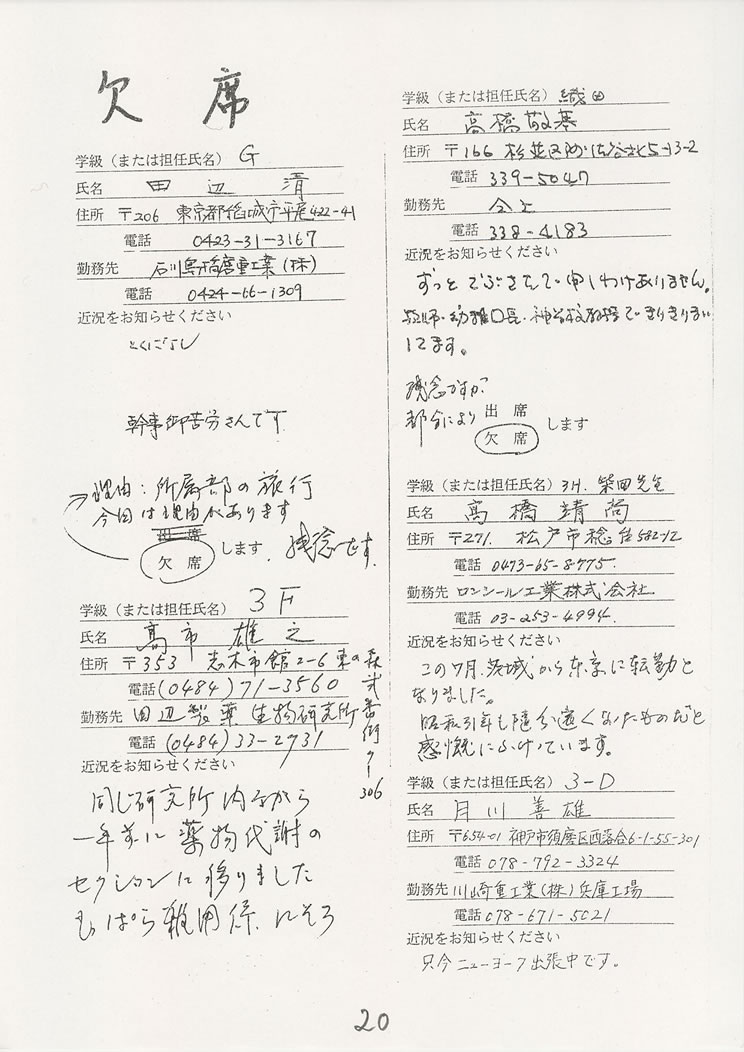 欠席
学級（または担任氏名） G
氏名 田辺 清
住所 〒206 東京都稲城市平尾422-41
電話 0423-31-3167
勤務先 石川島播磨重工業(株)
電話 0424-66-1309
近況をお知らせください
とくになし
幹事御苦労さんです
理由：所属部の旅行
今回は理由があります
出席
欠席 します. 残念です.
学級（または担任氏名） 3F
氏名 高市 雄之
住所 〒353 志木市館2-6 東の
森弐番街7-306
電話 (0484)71-3560
勤務先 田辺製薬生物研究所
電話 (0484)33-2931
近況をお知らせください
同じ研究所内ながら
一年前に薬物代謝の
セクションに移りました
もっぱら雑用係
学級（または担任氏名） 織田
氏名 高橋敬基
住所 〒166 杉並区阿佐谷 5-13-2
電話 339-5047
勤務先 仝上
電話 338-4183
近況をお知らせください
ずっとごぶさたして申しわけありません。
牧師・幼稚園長・神学校教授できりきりまい
してます。
残念ですが
都合により 出席
欠席 します
学級（または担任氏名） 3H. 築田先生
氏名 高橋靖尚
住所 〒271. 松戸市稔台582-12
電話 0473-65-8775.
勤務先 ロンシール工業株式会社
電話 03-253-4994.
近況をお知らせください
この7月、茨城から東京に転勤と
なりました。
昭和31年も随分遠くなったものだと
感慨にふけっています。
学級（または担任氏名） 3-D
氏名 月川善雄
住所 〒654-01 神戸市須磨区西落合6-1-55-301
電話 078-792-3324
勤務先 川崎重工業(株)兵庫工場
電話 078-671-5021
近況をお知らせください
只今ニューヨーク出張中です。
20